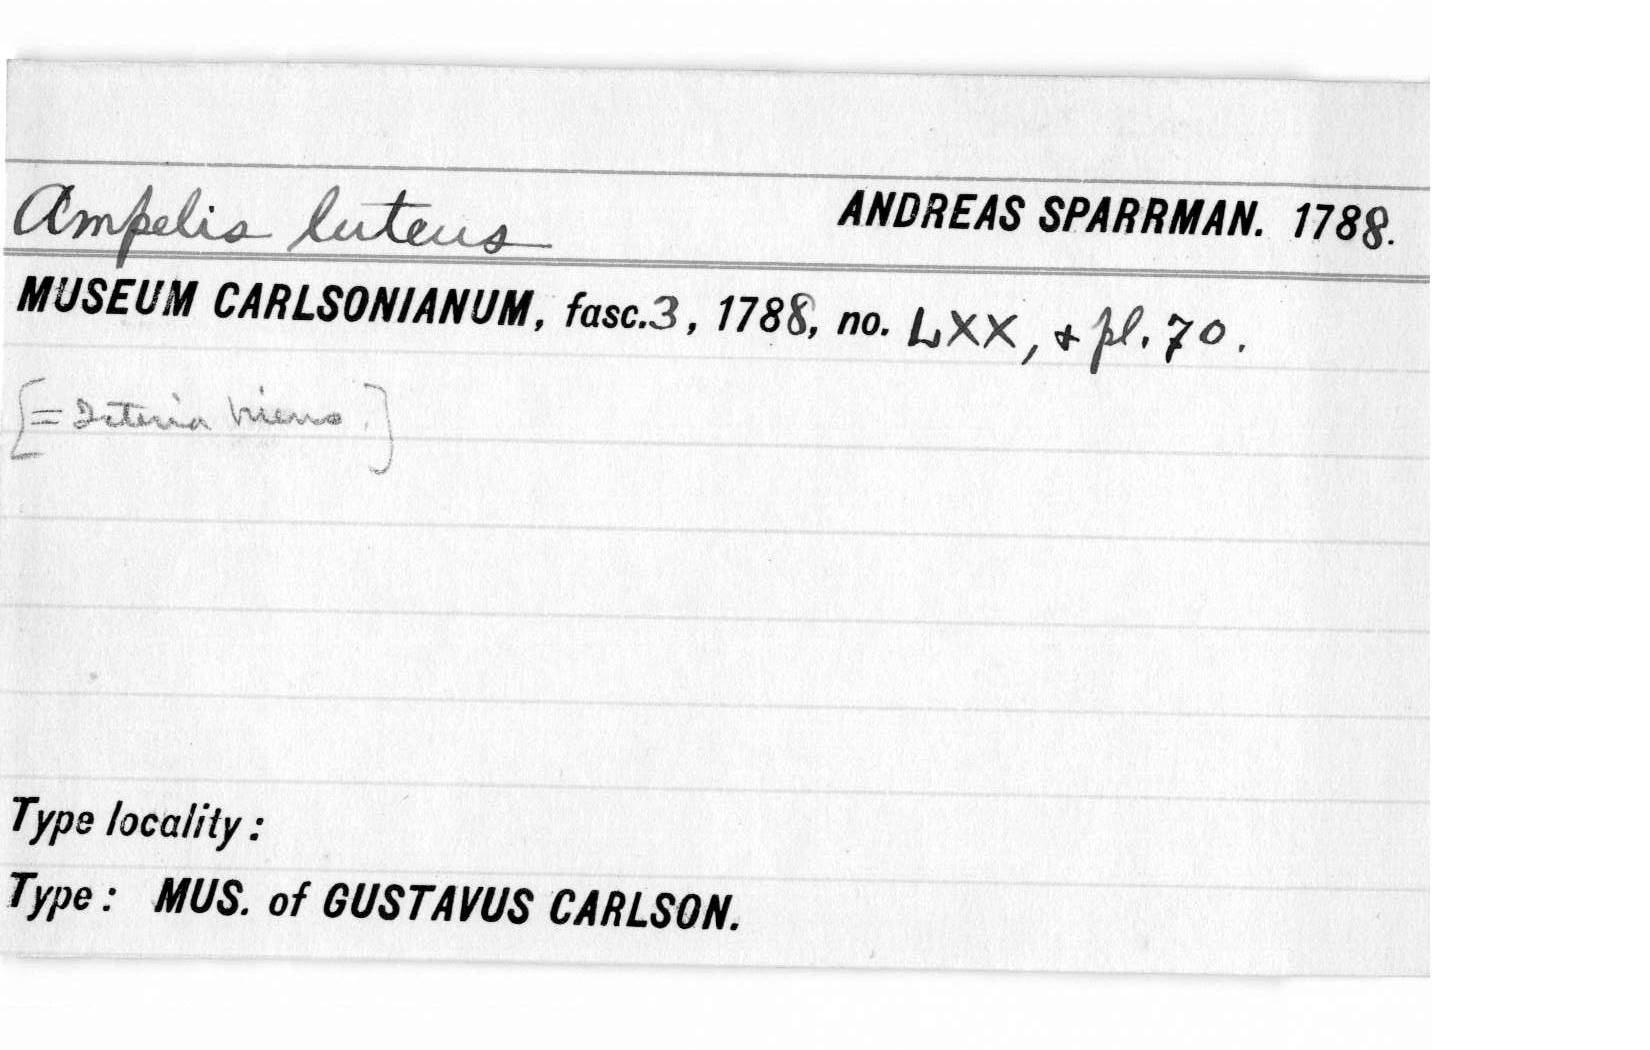 Ampelis luteus ANDREAS SPARRMAN. 1788.
MUSEUM CARLSONIANUM, fasc. 3, 1788, no. LXX, & pl. 70.
[= Icteria virens.]
Type locality:
Type: MUS. of GUSTAVUS CARLSON.